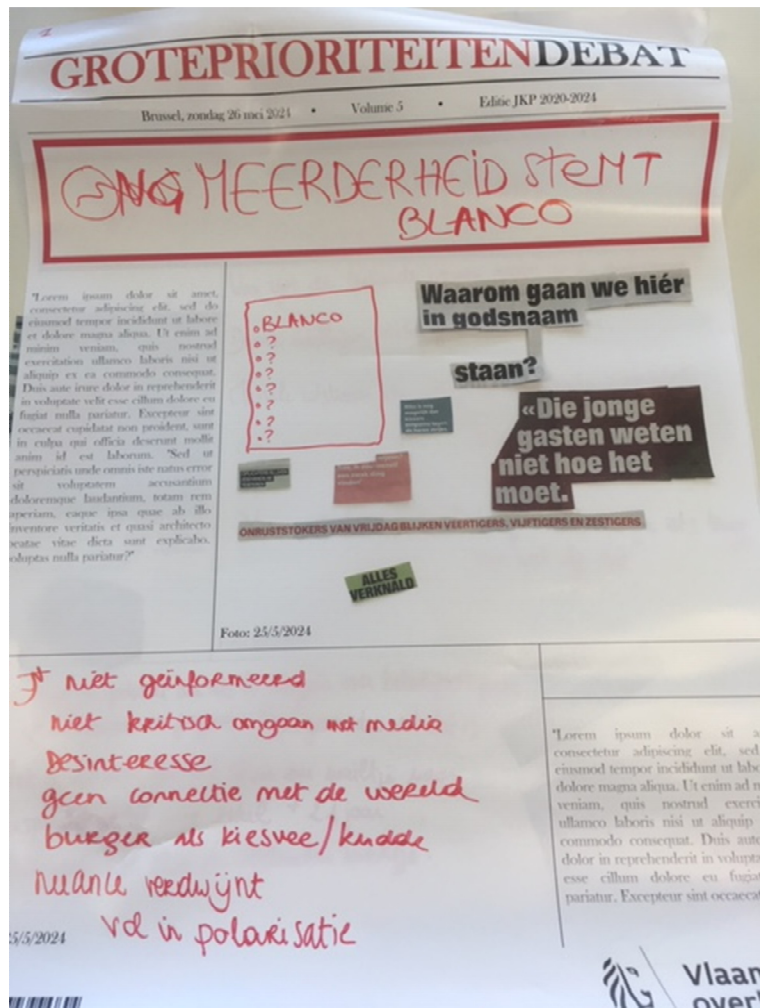 GROTEPRIORITEITENDEBAT
Brussel, zondag 26 mei 2024 • Volume 5 • Editie JKP 2020-2024
MEERDERHEID STEMT
BLANCO
"Lorem ipsum dolor sit amet,
consectetur adipiscing elit, sed do
eiusmod tempor incididunt ut labore
et dolore magna aliqua. Ut enim ad
minim veniam, quis nostrud
exercitation ullamco laboris nisi ut
aliquip ex ea commodo consequat.
Duis aute irure dolor in reprehenderit
in voluptate velit esse cillum dolore eu
fugiat nulla pariatur. Excepteur sint
occaecat cupidatat non proident, sunt
in culpa qui officia deserunt mollit
anim id est laborum. "Sed ut
perspiciatis unde omnis iste natus error
sit voluptatem accusantium
doloremque laudantium, totam rem
aperiam, eaque ipsa quae ab illo
inventore veritatis et quasi architecto
beatae vitae dicta sunt explicabo.
voluptas nulla pariatur?"
• BLANCO
• ?
• ?
• ?
• ?
• ?
• ?
• ?
Waarom gaan we hiér
in godsnaam
staan?
«Die jonge
gasten weten
niet hoe het
moet.
ONRUSTSTOKERS VAN VRIJDAG BLIJKEN VEERTIGERS, VIJFTIGERS EN ZESTIGERS
ALLES
VERKNALD
Foto: 25/5/2024
niet geïnformeerd
niet kritisch omgaan met media
Desinteresse
geen connectie met de wereld
burger als kiesvee/kudde
nuance verdwijnt
vol in polarisatie
5/5/2024
"Lorem ipsum dolor sit a
consectetur adipiscing elit, sed
eiusmod tempor incididunt ut labo
dolore magna aliqua. Ut enim ad m
veniam, quis nostrud exerci
ullamco laboris nisi ut aliquip
commodo consequat. Duis aute
dolor in reprehenderit in volupta
esse cillum dolore eu fugiat
pariatur. Excepteur sint occaecat
Vlaan
overh